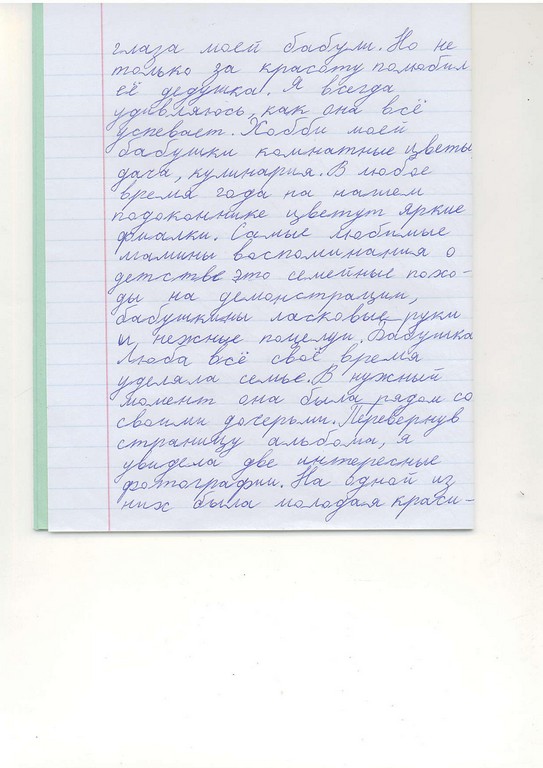 глаза моей бабули. Но не
только за красоту полюбил
её дедушка. Я всегда
удивляюсь, как она всё
успевает. Хобби моей
бабушки комнатные цветы
дача, кулинария. В любое
время года на нашем
подоконнике цветут яркие
фиалки. Самые любимые
мамины воспоминания о
детстве это семейные похо-
ды на демонстрации,
бабушкины ласковые руки
и, нежные поцелуи. Бабушка
Люба всё своё время
уделала семье. В нужный
момент она была рядом со
своими дочерьми. Перевернув
страницу альбома, я
увидела две интересные
фотографии. На одной из
них была молодая краси-